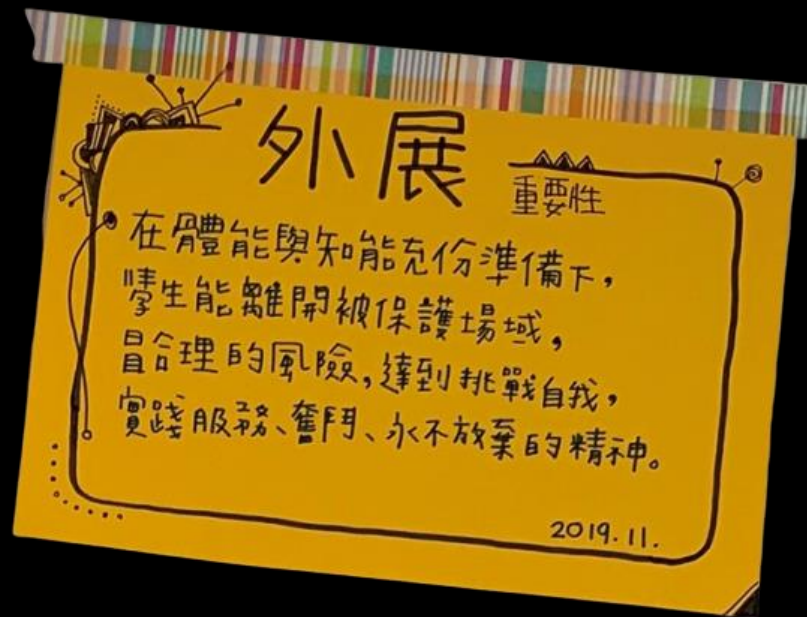 外展 重要性
在體能與知能充份準備下，
學生能離開被保護場域，
冒合理的風險，達到挑戰自我，
實踐服務、奮鬥、永不放棄的精神。
2019.11.